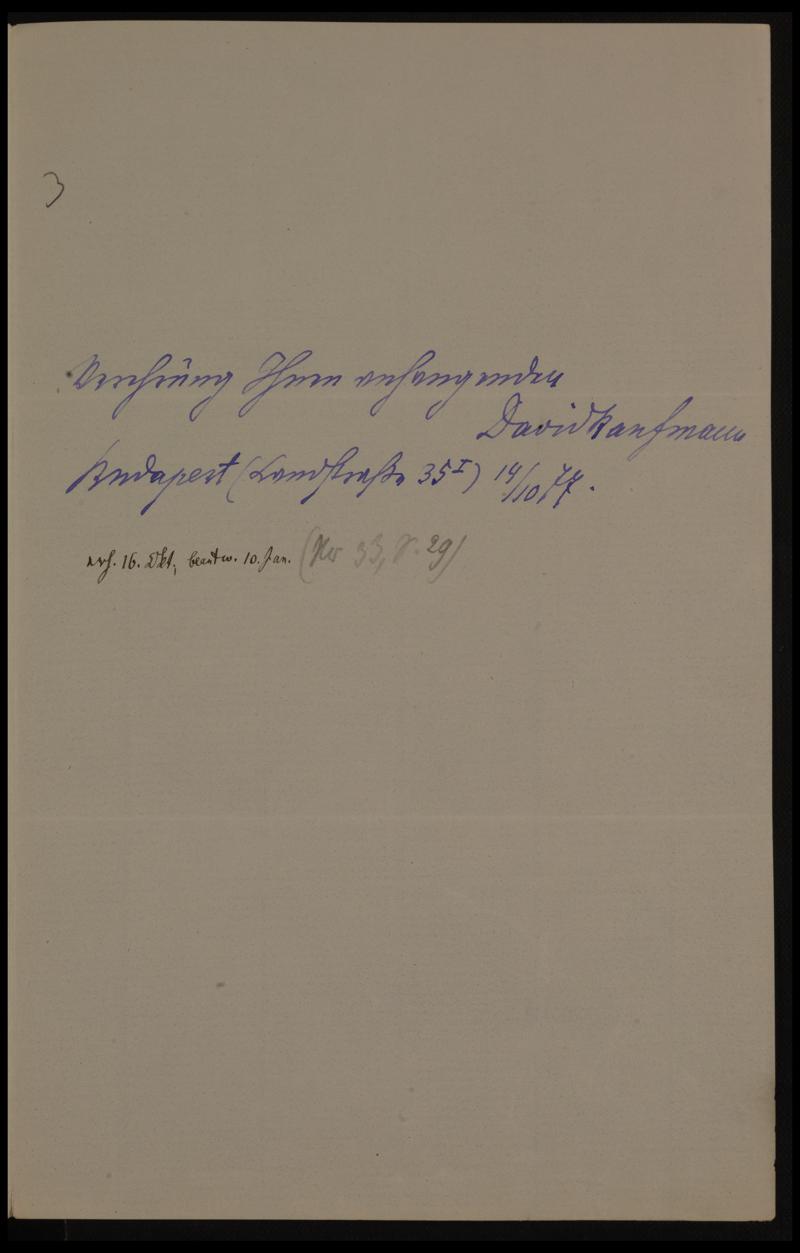 3
Verehrung Ihnen anhangenden
David Kaufmann
Budapest (Landstraße 35 I) 14/10 77.
erh. 16. Okt; beantw. 10. Jan. (Nr 33, S. 29)